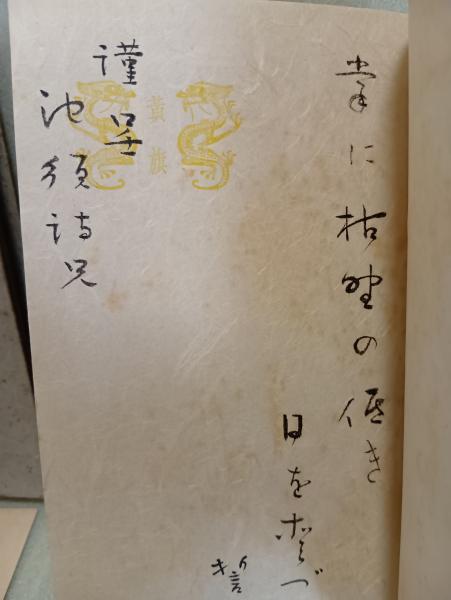 掌に枯野の低き
日を愛づ
誓
黃旗
謹呈
池須詩兄